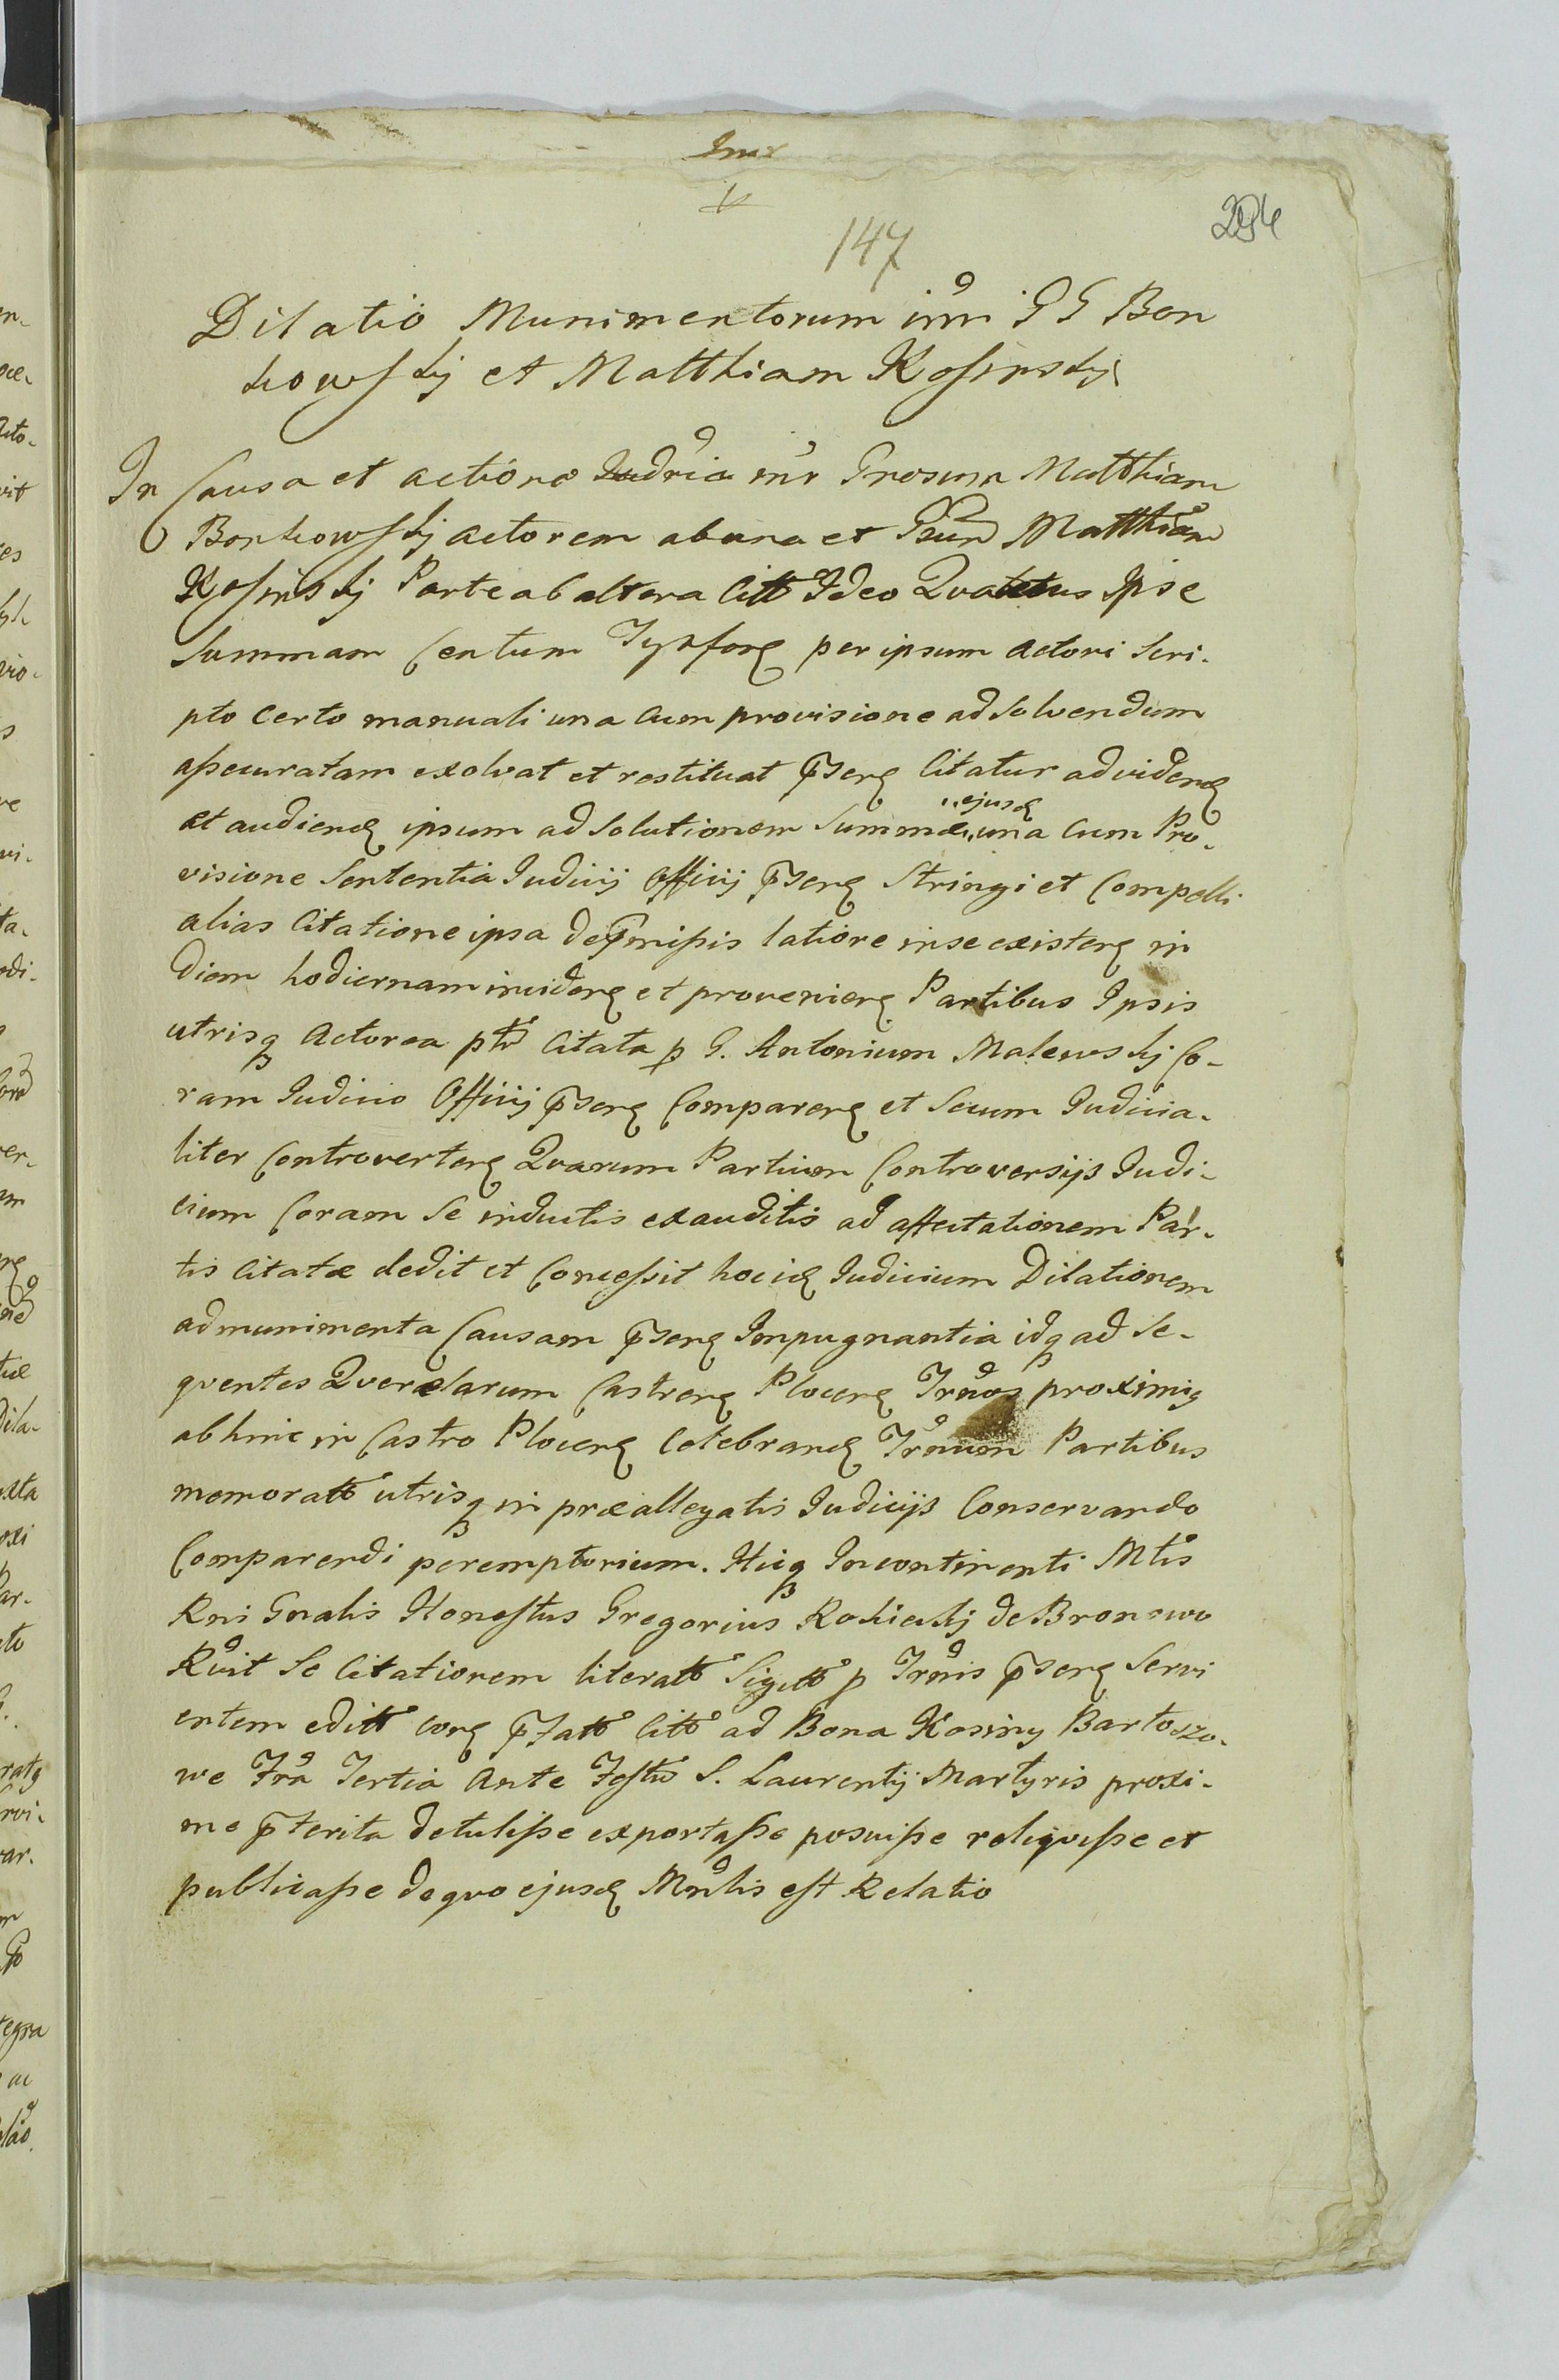 147
Dilatio Munimentorum inr GG Bon
kowskj et Matthiam Kosinskj
In Causa et actione Judria inr Grosum Matthiam
Bonkowskj actorem ab una et Gsum Matthiam
Kosinskj Parte ab altera Citt Ideo Quatenus Ipse
Summam Centum Tynforg per ipsum actori Scri-
pto Certo manuali una Cum provisione ad Solvendum
assecuratam exolvat et restituat pnserq Citatur ad videnq
et audienq ipsum ad Solutionem Summæ „ejusq„ una Cum Pro-
visione Sententia Judicij Officij pserq Stringi et Compelli
alias Citatione ipsa de pmissis latiore in se existenq in
Diem hodiernam incidenq et provenienq Partibus Ipsis
utrisq Actorea pte Citata p G. Antonium Malewskj Co-
ram Judicio Officij pserq Comparenq et Secum Judicia-
liter Controvertenq Quarum Partium Controversijs Judi-
cium Coram Se inductis exauditis ad affectationem Par-
tis Citatæ dedit et Concessit hociq Judicium Dilationem
ad munimenta Causam pserq Impugnantia idq ad Se-
quentes Querelarum Castrenq Plocenq Trnos proximiq
abhinc in Castro Plocenq Celebranq Trnum Partibus
memoratt utrisq in præallegatis Judicijs Conservando
Comparendi peremptorium. Hicq Incontinenti Mtis
Rni Gnalis Honestus Gregorius Rokickij de Bronowo
Rvit Se Citationem literatt Sigitt p Trnis pserq Servi
entem editt conq pfatt Citt ad Bona Kosiny Bartoszo-
we Fra Tertia Ante Festu S. Laurentij Martyris proxi-
me pterita detulisse exportasse posuisse reliquisse et
publicasse de quo ejusq Mnlis est Relatio